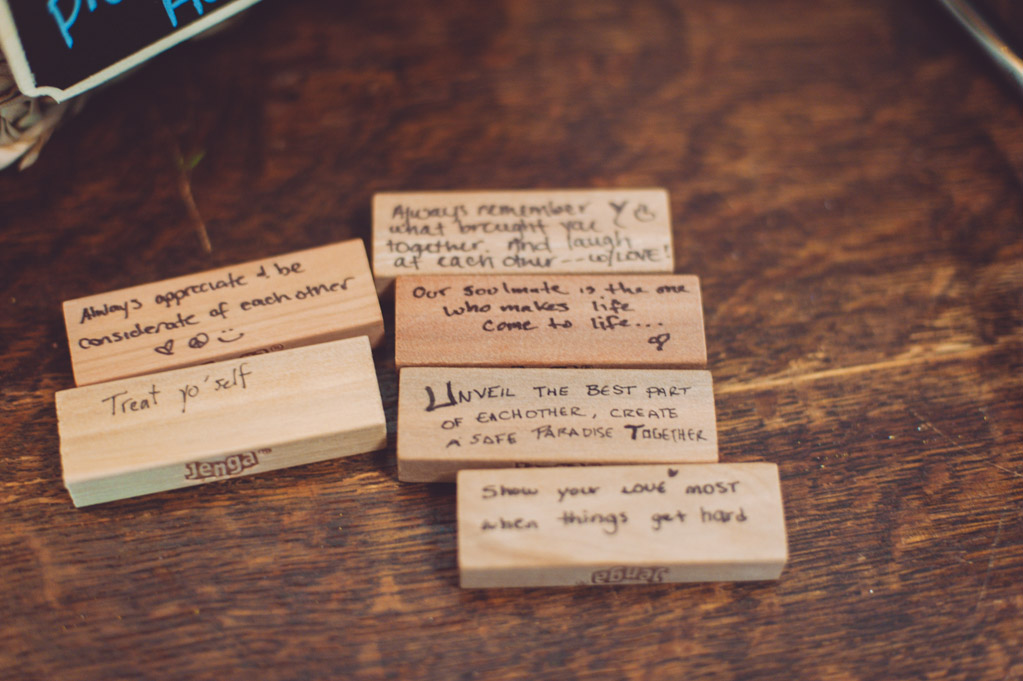 Always remember
what brought you
together. And laugh
at each other -- w/LOVE!
Always appreciate & be
considerate of each other
Our soulmate is the one
who makes life
come to life...
Treat yo'self
Jenga™
UNVEIL THE BEST PART
OF EACHOTHER, CREATE
A SAFE PARADISE TOGETHER
Show your LOVE MOST
when things get hard
Jenga